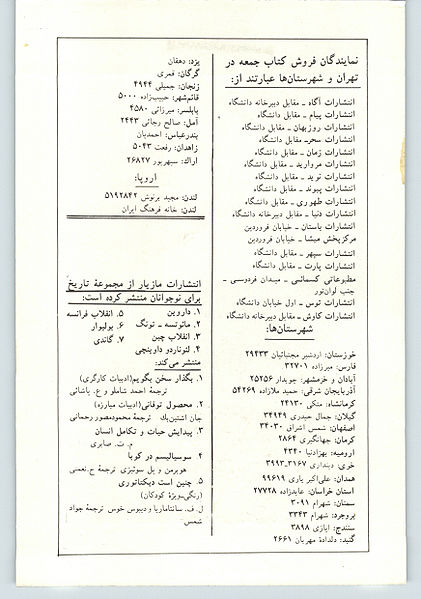 نمایندگان فروش کتاب جمعه در
تهران و شهرستان‌ها عبارتند از:
انتشارات آگاه ــ مقابل دبیرخانه دانشگاه
انتشارات پیام ــ مقابل دانشگاه
انتشارات روزبهان ــ مقابل دانشگاه
انتشارات سحر ــ مقابل دانشگاه
انتشارات زمان ــ مقابل دانشگاه
انتشارات مروارید ــ مقابل دانشگاه
انتشارات نوید ــ مقابل دانشگاه
انتشارات پیوند ــ مقابل دانشگاه
انتشارات طهوری ــ مقابل دانشگاه
انتشارات دنیا ــ مقابل دبیرخانه دانشگاه
انتشارات باستان ــ خیابان فروردین
مرکز پخش میشا ــ خیابان فروردین
انتشارات سپهر ــ مقابل دانشگاه
انتشارات پارت ــ مقابل دانشگاه
مطبوعاتی کسمائی ــ میدان فردوسی ــ
جنب لوان‌تور
انتشارات توس ــ اول خیابان دانشگاه
انتشارات کاوش ــ مقابل دبیرخانه دانشگاه
شهرستان‌ها:
خوزستان: اردشیر مجتبائیان ۲۹۴۳۳
فارس: میرزاده ۳۲۷۰۱
آبادان و خرمشهر: جویدار ۲۵۲۵۶
آذربایجان شرقی: حمید ملازاده ۵۴۲۶۹
کرمانشاه: متکی ۲۴۱۳۰
گیلان: جمال حیدری ۳۴۹۴۹
اصفهان: شمس اشراق ۳۴۰۳۰
کرمان: جهانگیری ۲۸۶۴
ارومیه: بهزادنیا ۴۳۴۰
خوی: دینداری ۳۱۶۷ـ۳۹۹۳
همدان: علی‌اکبر یاری ۹۹۶۱۹
استان خراسان: عابدزاده ۲۷۷۲۸
سمنان: شهرام ۳۰۹۱
بروجرد: شهرام ۳۳۴۳
سنندج: ایازی ۳۸۹۸
گنبد: دلدادهٔ مهربان ۲۶۶۱
یزد: دهقان
گرگان: قمری
زنجان: جمیلی ۴۹۴۴
قائم‌شهر: حبیب‌زاده ۵۰۰۰
بابلسر: میرزائی ۴۵۸۰
آمل: صالح رجائی ۲۴۴۳
بندرعباس: احمدیان
زاهدان: رفعت ۵۰۴۳
اراک: سپهرپور ۲۶۸۲۷
اروپا:
لندن: مجید برنوش ۵۱۹۲۸۴۲
لندن: خانه فرهنگ ایران
انتشارات مازیار از مجموعهٔ تاریخ
برای نوجوانان منتشر کرده است:
۱. داروین
۲. مائوتسه ــ تونگ
۳. انقلاب چین
۴. لئوناردو داوینچی
۵. انقلاب فرانسه
۶. بولیوار
۷. گاندی
منتشر می‌کند:
۱. بگذار سخن بگویم (ادبیات کارگری)
ترجمهٔ احمد شاملو و ع. پاشائی
۲. محصول توفانی (ادبیات مبارزه)
جان اشتین‌بك ترجمهٔ محمودمصور رحمانی
۳. پیدایش حیات و تکامل انسان
م. ت. صابری
۴. سوسیالیسم در کوبا
هوبرمن و پل سوئیزی ترجمهٔ ح. نعمتی
۵. چنین است دیکتاتوری
(رنگی-ویژهٔ کودکان)
ل. ف. سانتاماریا و دیبوس خوس ترجمهٔ جواد
شمس